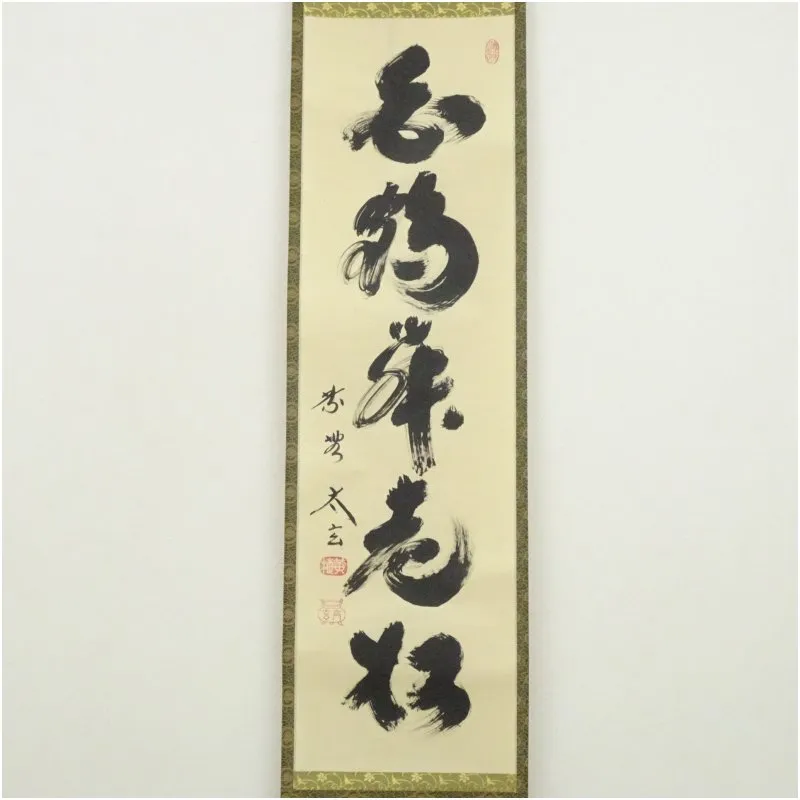 白鶴舞老松
紫野 太玄